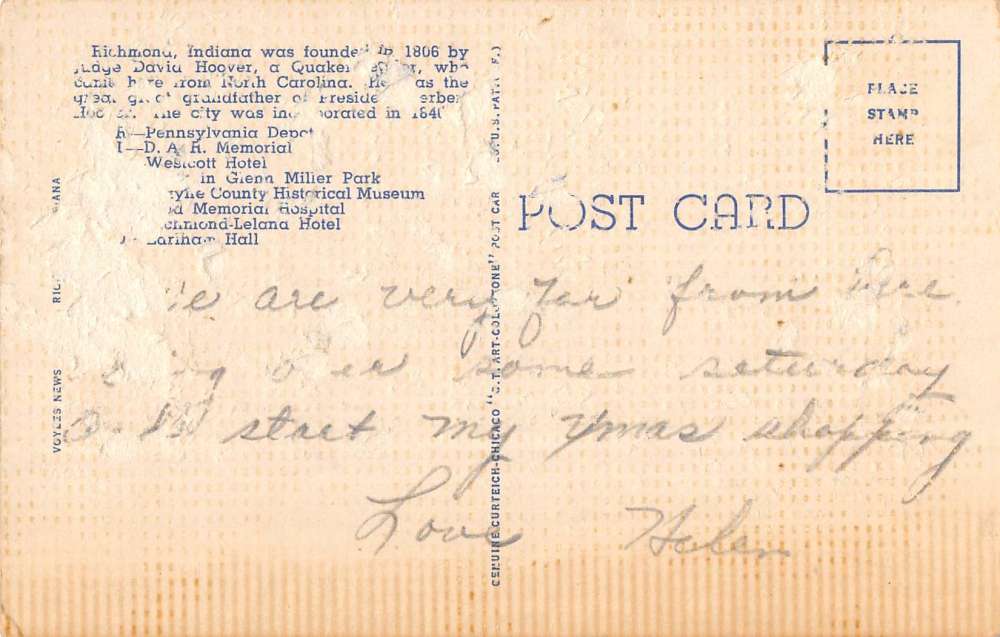 Richmond, Indiana was founded in 1806 by
Judge David Hoover, a Quaker, who
came here from North Carolina. He was the
great great grandfather of President Herbert
Hoover. The city was incorporated in 1840
R—Pennsylvania Depot
I—D. A. R. Memorial
Westcott Hotel
in Glenn Miller Park
Wayne County Historical Museum
Reid Memorial Hospital
Richmond-Leland Hotel
Earlham Hall
VOYLES NEWS RICHMOND, INDIANA
GENUINE CURTEICH-CHICAGO "C.T. ART-COLORTONE" POST CARD (REG. U.S. PAT. OFF.)
PLACE
STAMP
HERE
POST CARD
We are very far from here.
over some saturday
start my Xmas shopping
Love Helen